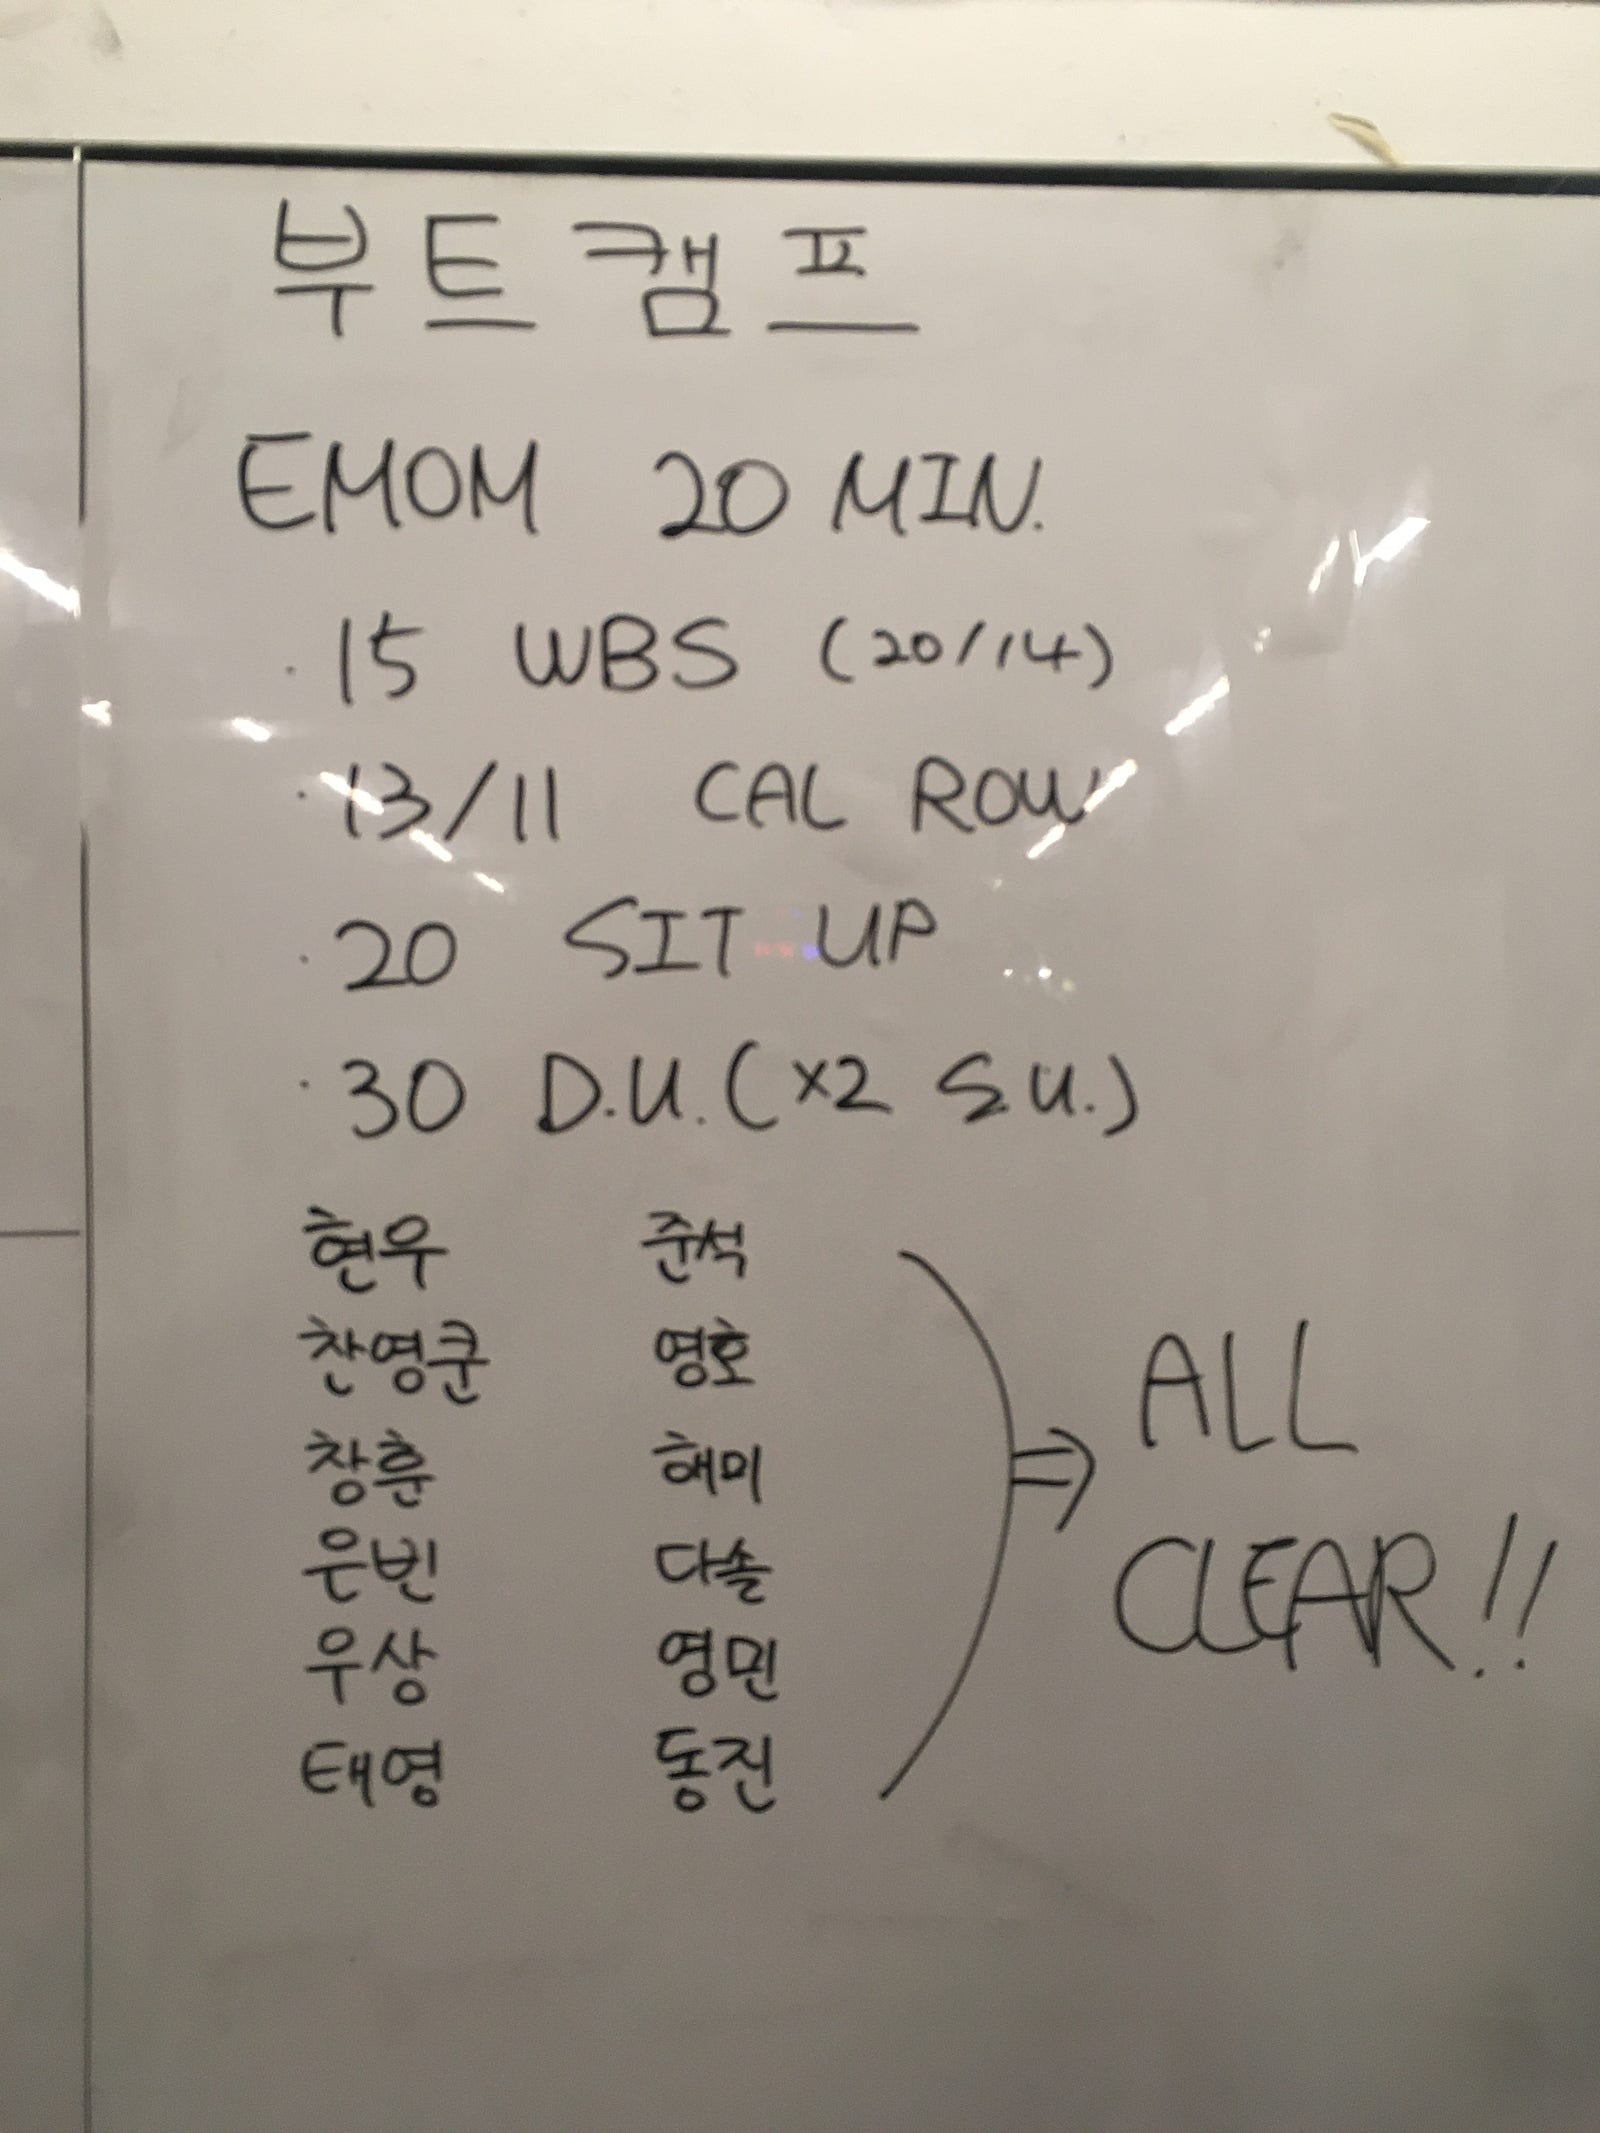 부트캠프
EMOM 20 MIN.
· 15 WBS (20/14)
· 13/11 CAL ROW
· 20 SIT UP
· 30 D.U. (x2 S.U.)
현우 준석
찬영쿤 영호
창훈 해미
은빈 다솔
우상 영민
태영 동진
⇒ ALL
CLEAR!!